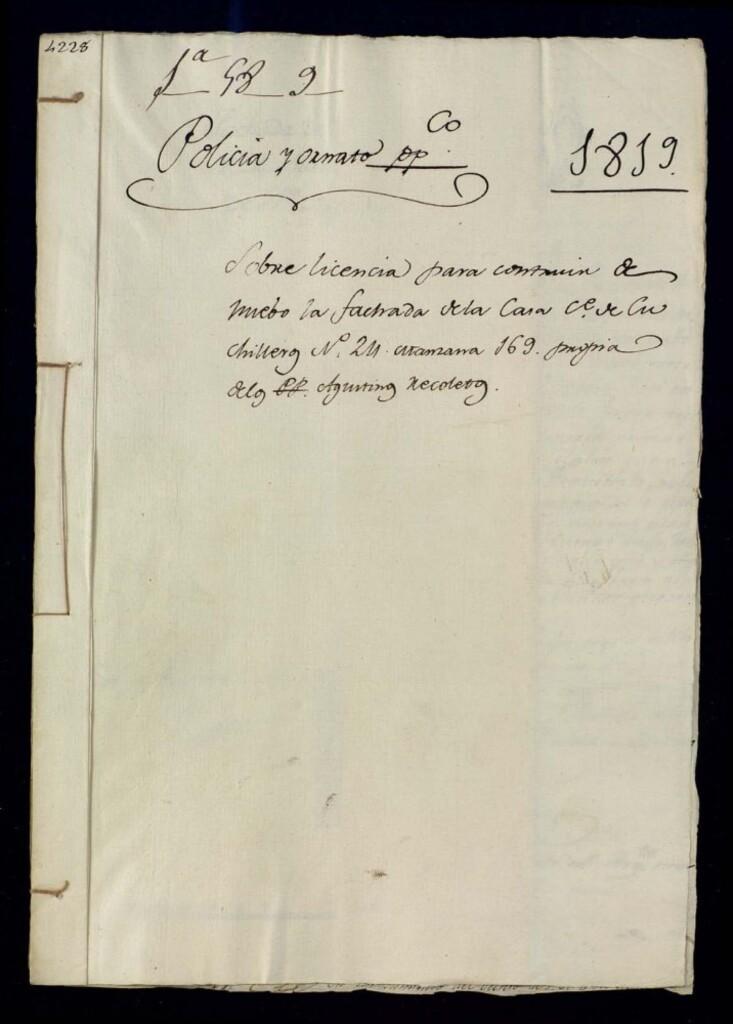 4228
1ª 58 9
Policia y ornato pp.co
1819.
Sobre licencia para construir de
nuebo la fachada dela Casa C.e de Cu
chilleros N.º 24 manzana 169. propia
delos PP. Agustinos recoletos.